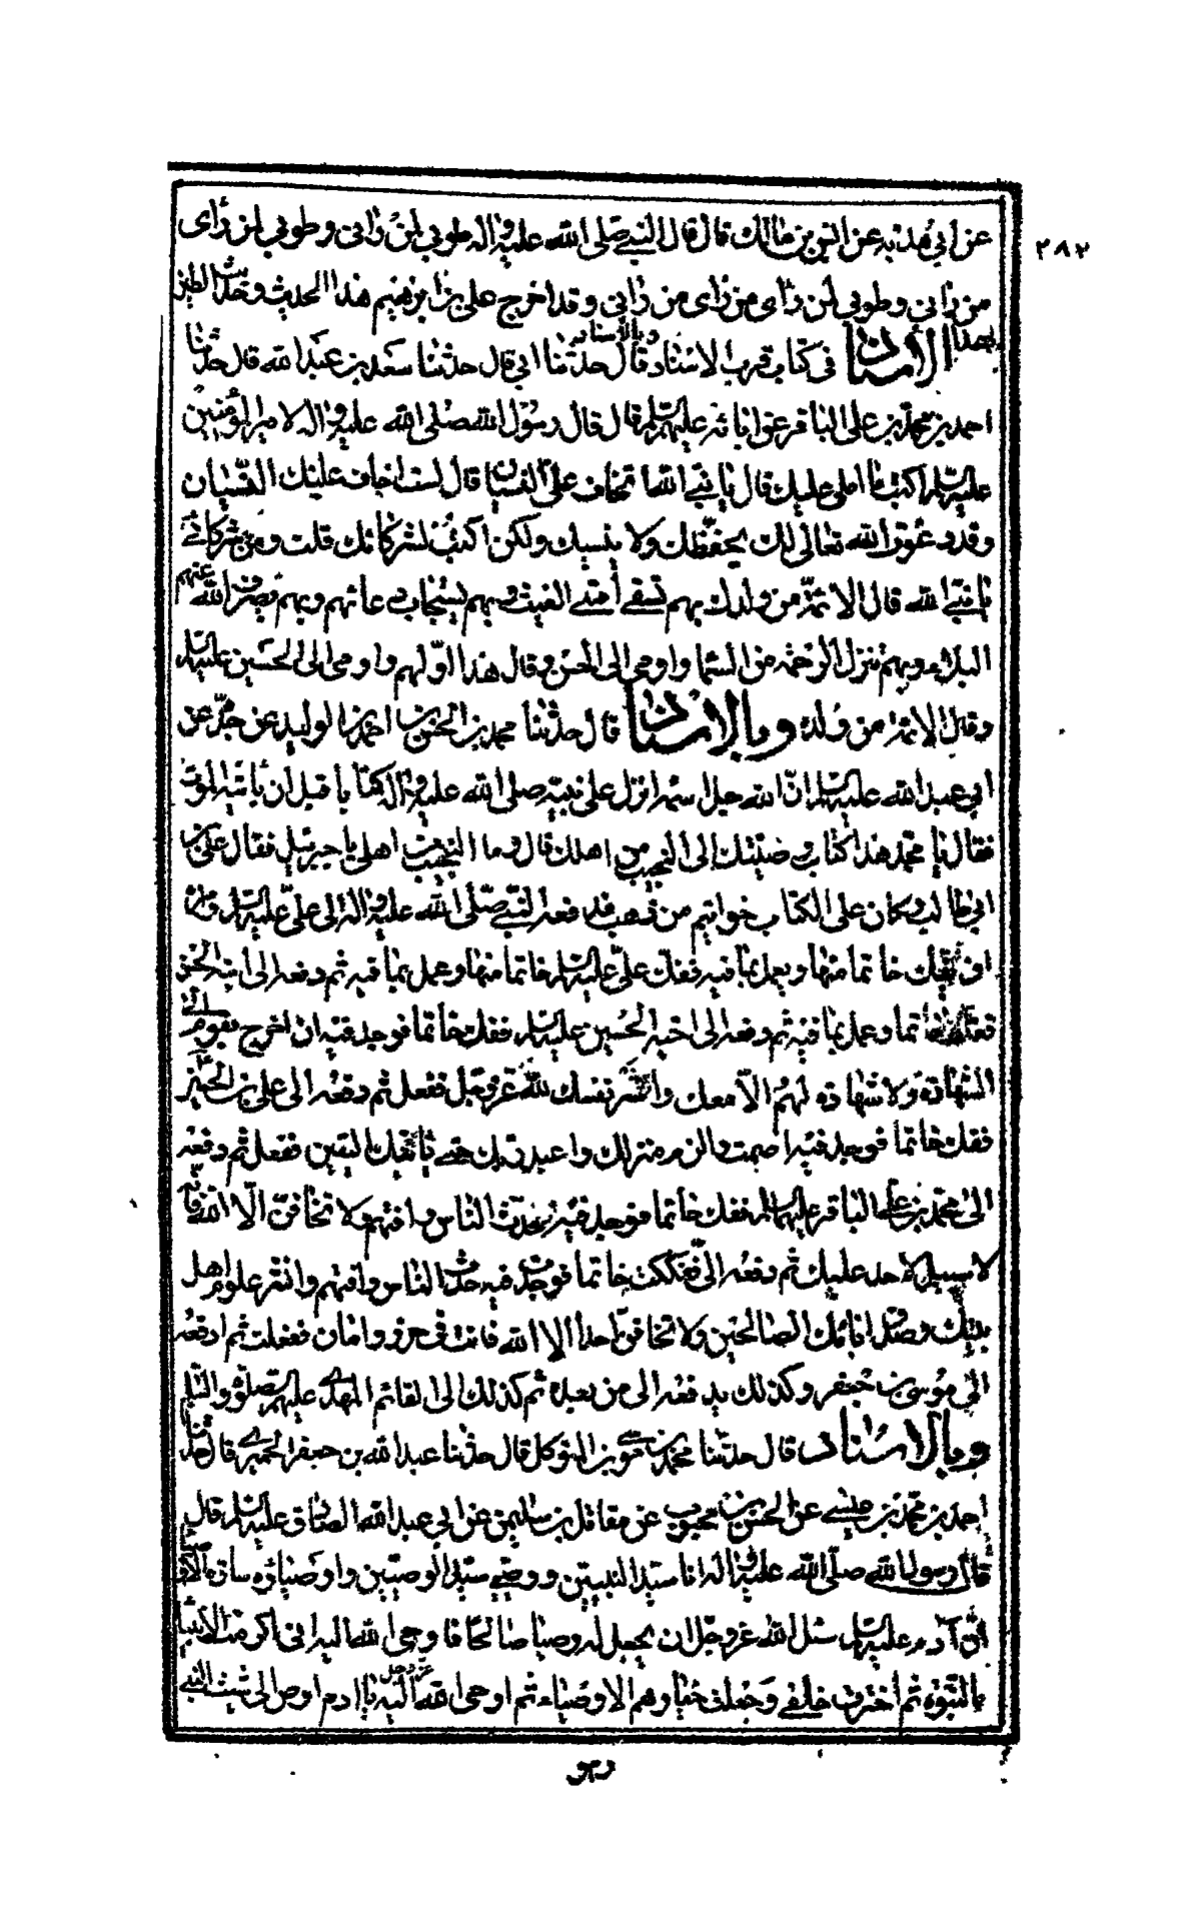 ٢٨٢
عن ابي هدبه عن انس بن مالك قال قال النبي صلى الله عليه واله طوبى لمن راني وطوبى لمن راى
من راني وطوبى لمن راى من راى من راني وقد اخرج علي بن ابرهيم هذا الحديث وحديث الطير
بهذا الاسناد في كتاب قرب الاسناد وبالاسناد قال حدثنا ابي قال حدثنا سعد بن عبد الله قال حدثنا
احمد بن محمد بن علي الباقر عن ابائه عليهم السلم قال قال رسول الله صلى الله عليه واله لامير المؤمنين
عليه السلم اكتب ما املى عليك قال يا نبي الله اتخاف على النسيان قال لست اخاف عليك النسيان
وقد دعوت الله تعالى لك يحفظك ولا ينسيك ولكن اكتب لشركائك قلت ومن شركائي
يا نبي الله قال الائمة من ولدك بهم تسقى امتي الغيث وبهم يستجاب دعائهم وبهم يصرف الله عنهم
البلاء وبهم تنزل الرحمه من السماء واومى الى الحسن وقال هذا اولهم واومى الى الحسين عليه السلم
وقال الائمة من ولده وبالاسناد قال حدثنا محمد بن الحسن بن احمد بن الوليد عن عن
ابي عبد الله عليه السلم ان الله جل اسمه انزل على نبيه صلى الله عليه واله كتابا قبل ان ياتيه الموت
فقال يا محمد هذا كتاب وصيتك الى النجيب من اهلك قال وما النجيب من اهلي يا جبرئيل فقال علي بن
ابي طالب وكان على الكتاب خواتيم من ذهب فدفعه النبي صلى الله عليه واله الى علي عليه السلم وامره
ان يفك خاتما منها ويعمل بما فيه ففك علي عليه السلم خاتما منها وعمل بما فيه ثم دفعه الى ابنه الحسن
ففك خاتما وعمل بما فيه ثم دفعه الى اخيه الحسين عليه السلم ففك خاتما فوجد فيه ان اخرج بقوم الى
الشهادة ولا شهادة لهم الا معك واشتر نفسك لله عز وجل ففعل ثم دفعه الى علي بن الحسين
ففك خاتما فوجد فيه اصمت والزم منزلك واعبد ربك حتى ياتيك اليقين ففعل ثم دفعه
الى محمد بن علي الباقر عليهما السلم ففك خاتما فوجد فيه حدث الناس وافتهم ولا تخافن الا الله فانه
لا سبيل لاحد عليك ثم دفعه الى ففككت خاتما فوجدت فيه حدث الناس وافتهم وانشر علوم اهل
بيتك وصدق ابائك الصالحين ولا تخافن احدا الا الله فانت في حرز وامان ففعلت ثم ادفعه
الى موسى بن جعفر وكذلك يدفعه الى من بعده ثم كذلك الى القائم المهدي عليهم الصلوة والسلم
وبالاسناد قال حدثنا محمد بن موسى بن المتوكل قال حدثنا عبد الله بن جعفر الحميري قال حدثنا
احمد بن محمد بن عيسى عن الحسن بن محبوب عن مقاتل بن سليمن عن ابي عبد الله الصادق عليه السلم قال
قال رسول الله صلى الله عليه واله انا سيد النبيين ووصيي سيد الوصيين واوصياؤه سادة الاوصياء
ان آدم عليه السلم سئل الله عز وجل ان يجعل له وصيا صالحا فاوحى الله اليه اني اكرمت الانبياء
بالنبوة ثم اخترت خلقي وجعلت خيارهم الاوصياء ثم اوحى الله عز وجل اليه يا ادم اوص الى شيث النبي